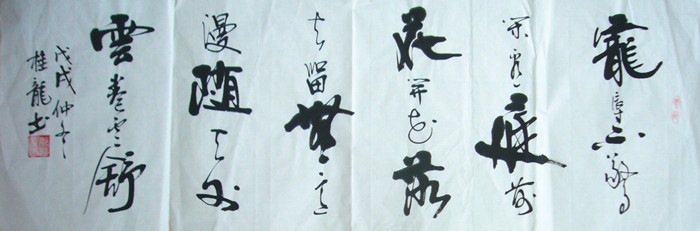 寵辱不驚
閑看庭前
花開花落
去留無意
漫随天外
雲卷雲舒
戊戌仲冬
桂龍书